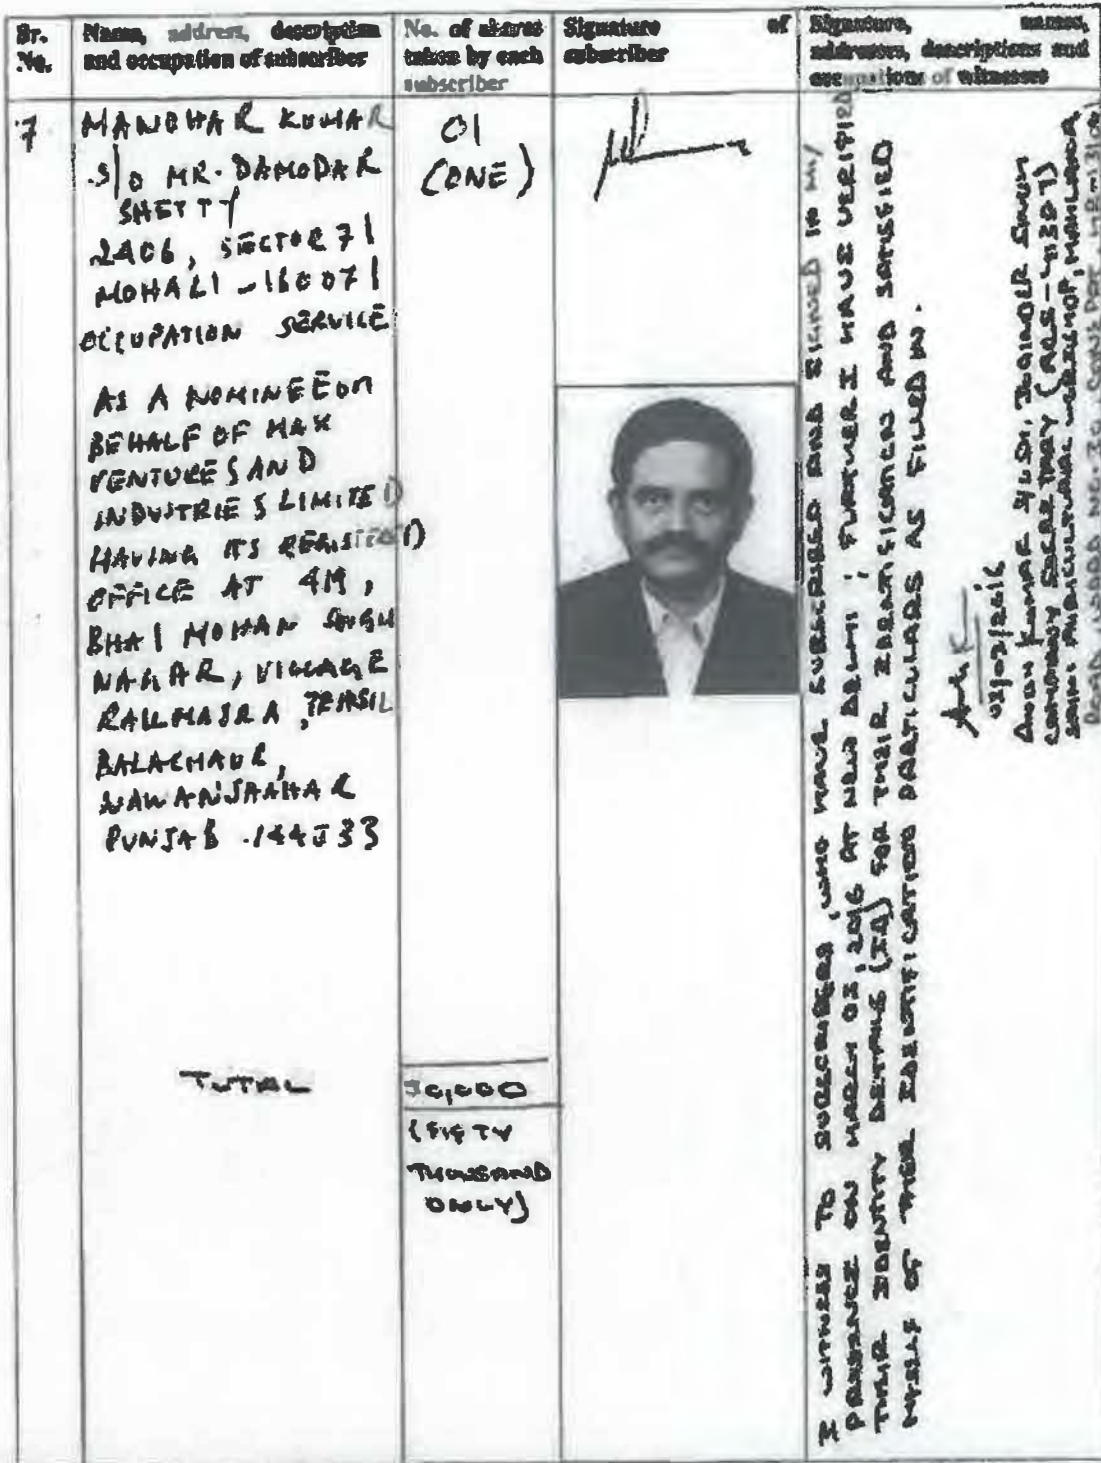 Sr. No.
Name, address, description and occupation of subscriber
No. of shares taken by each subscriber
Signature of subscriber
Signature, names, addresses, descriptions and occupations of witnesses
7
MANOHAR KUMAR
S/O MR. DAMODAR
SHETTY
2406, SECTOR 71
MOHALI - 160071
OCCUPATION SERVICE
AS A NOMINEE ON
BEHALF OF MAX
VENTURES AND
INDUSTRIES LIMITED
HAVING ITS REGISTERED
OFFICE AT 419,
BHAI MOHAN SINGH
NAGAR, VILLAGE
RAILMAJRA, TEHSIL
BALACHAUR,
NAWANSHAHAR
PUNJAB . 144533
01
(ONE)
TOTAL
50,000
(FIFTY
THOUSAND
ONLY)
I WITNESS TO SUBSCRIBERS, WHO HAVE SUBSCRIBED AND SIGNED IN MY
PRESENCE ON MARCH 02, 2016 AT NEW DELHI ; FURTHER I HAVE VERIFIED
THEIR IDENTITY DETAILS (ID) FOR THEIR IDENTIFICATION AND SATISFIED
MYSELF OF THEIR IDENTIFICATION PARTICULARS AS FILLED IN.
02/03/2016
KUMAR S/O SH. SINGH
COMPANY SECRETARY
SAINI AGRICULTURAL WORKSHOP,
ROAD,